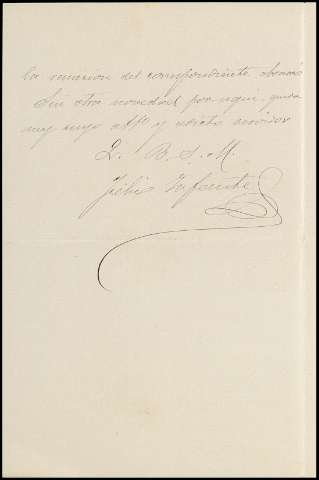 la remision del correspondiente abonaré
Sin otra novedad por aqui queda
muy suyo affº y adicto servidor
Q. B. S. M.
Felix Infante